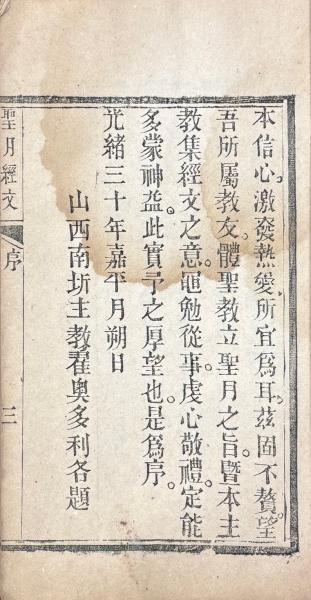 本信心激發熱愛所宜爲耳。茲固不贅望
吾所屬教友。體聖教立聖月之旨。曁本主
教集經文之意。黽勉從事。虔心敬禮。定能
多蒙神益。此實予之厚望也。是爲序。
光緒三十年嘉平月朔日
山西南圻主教翟奧多利各題
聖月經文
序
三